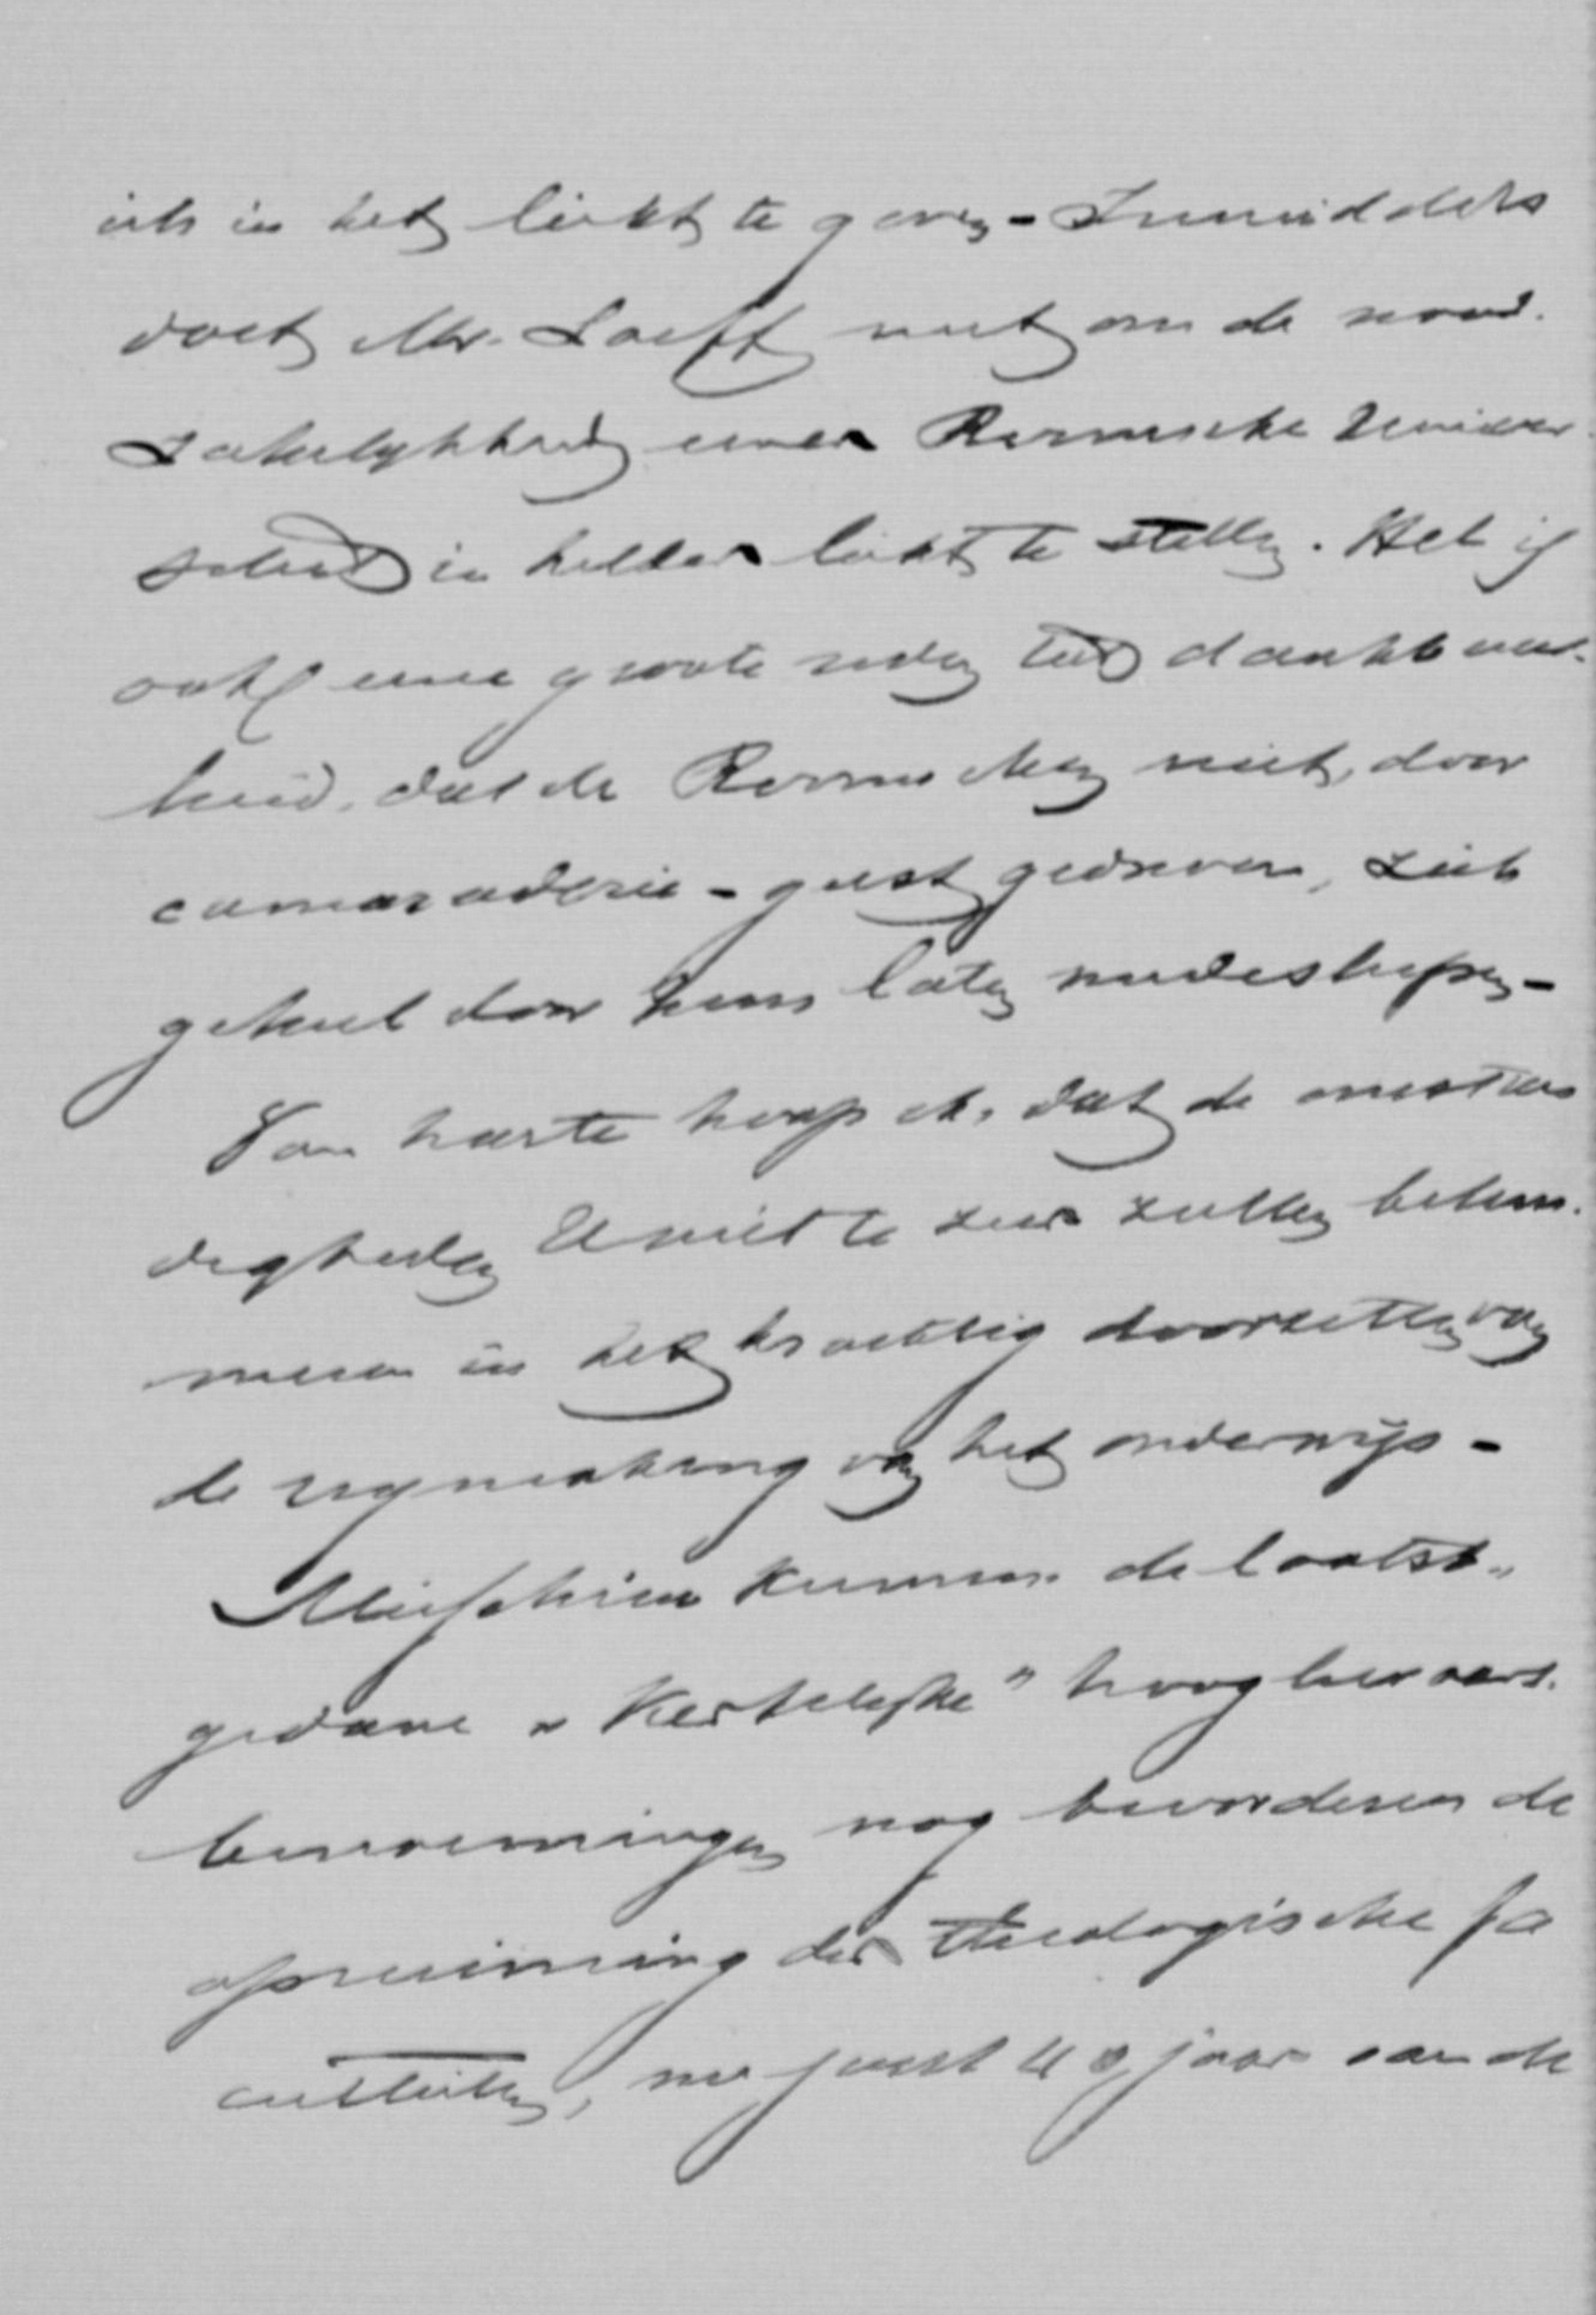 iets in het licht te geven. - Inmiddels
doet Mr. Loeff niet om de nood-
zakelijkheid eener Roomsche Univer-
siteit in helder licht te stellen. Het is
ook eene groote reden tot dankbaar-
heid, dat de Roomschen niet, door
camaraderie-geest gedreven, zich
geheel door hem laten medeslepen -
Van harte hoop ik, dat de omstan
digheden U niet te zeer zullen belem-
meren in het krachtig doorzetten van
de vrijmaking van het onderwijs -
Misschien kunnen de laatst-
gedane "Kerkelijke" hoogleeraars-
benoemingen nog bevorderen de
opruiming der theologische fa
culteiten, nu juist 40 jaar aan de